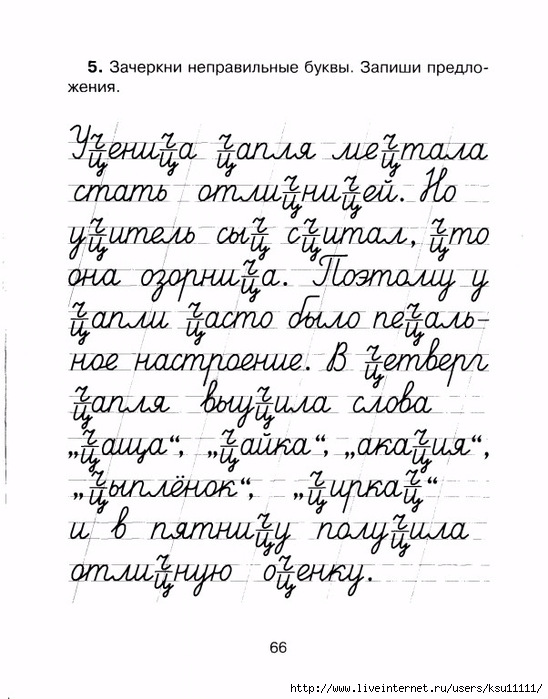 5. Зачеркни неправильные буквы. Запиши предло-
жения.
Уч/цenич/ца ч/цапля меч/цтала
стать отлич/цнич/цей. Но
уч/цитель сыч/ц сч/цитал, ч/что
она озорнич/ца. Поэтому у
ч/цапли ч/часто было печ/цаль-
ное настроение. В ч/цетверг
ч/цапля выуч/цила слова
„ч/цаща“, „ч/цайка“, „акач/ция“,
„ч/цыплёнок“, „ч/циркач/ц“
и в пятнич/цу получ/цила
отлич/цную оч/ценку.
66
http://www.liveinternet.ru/users/ksu11111/